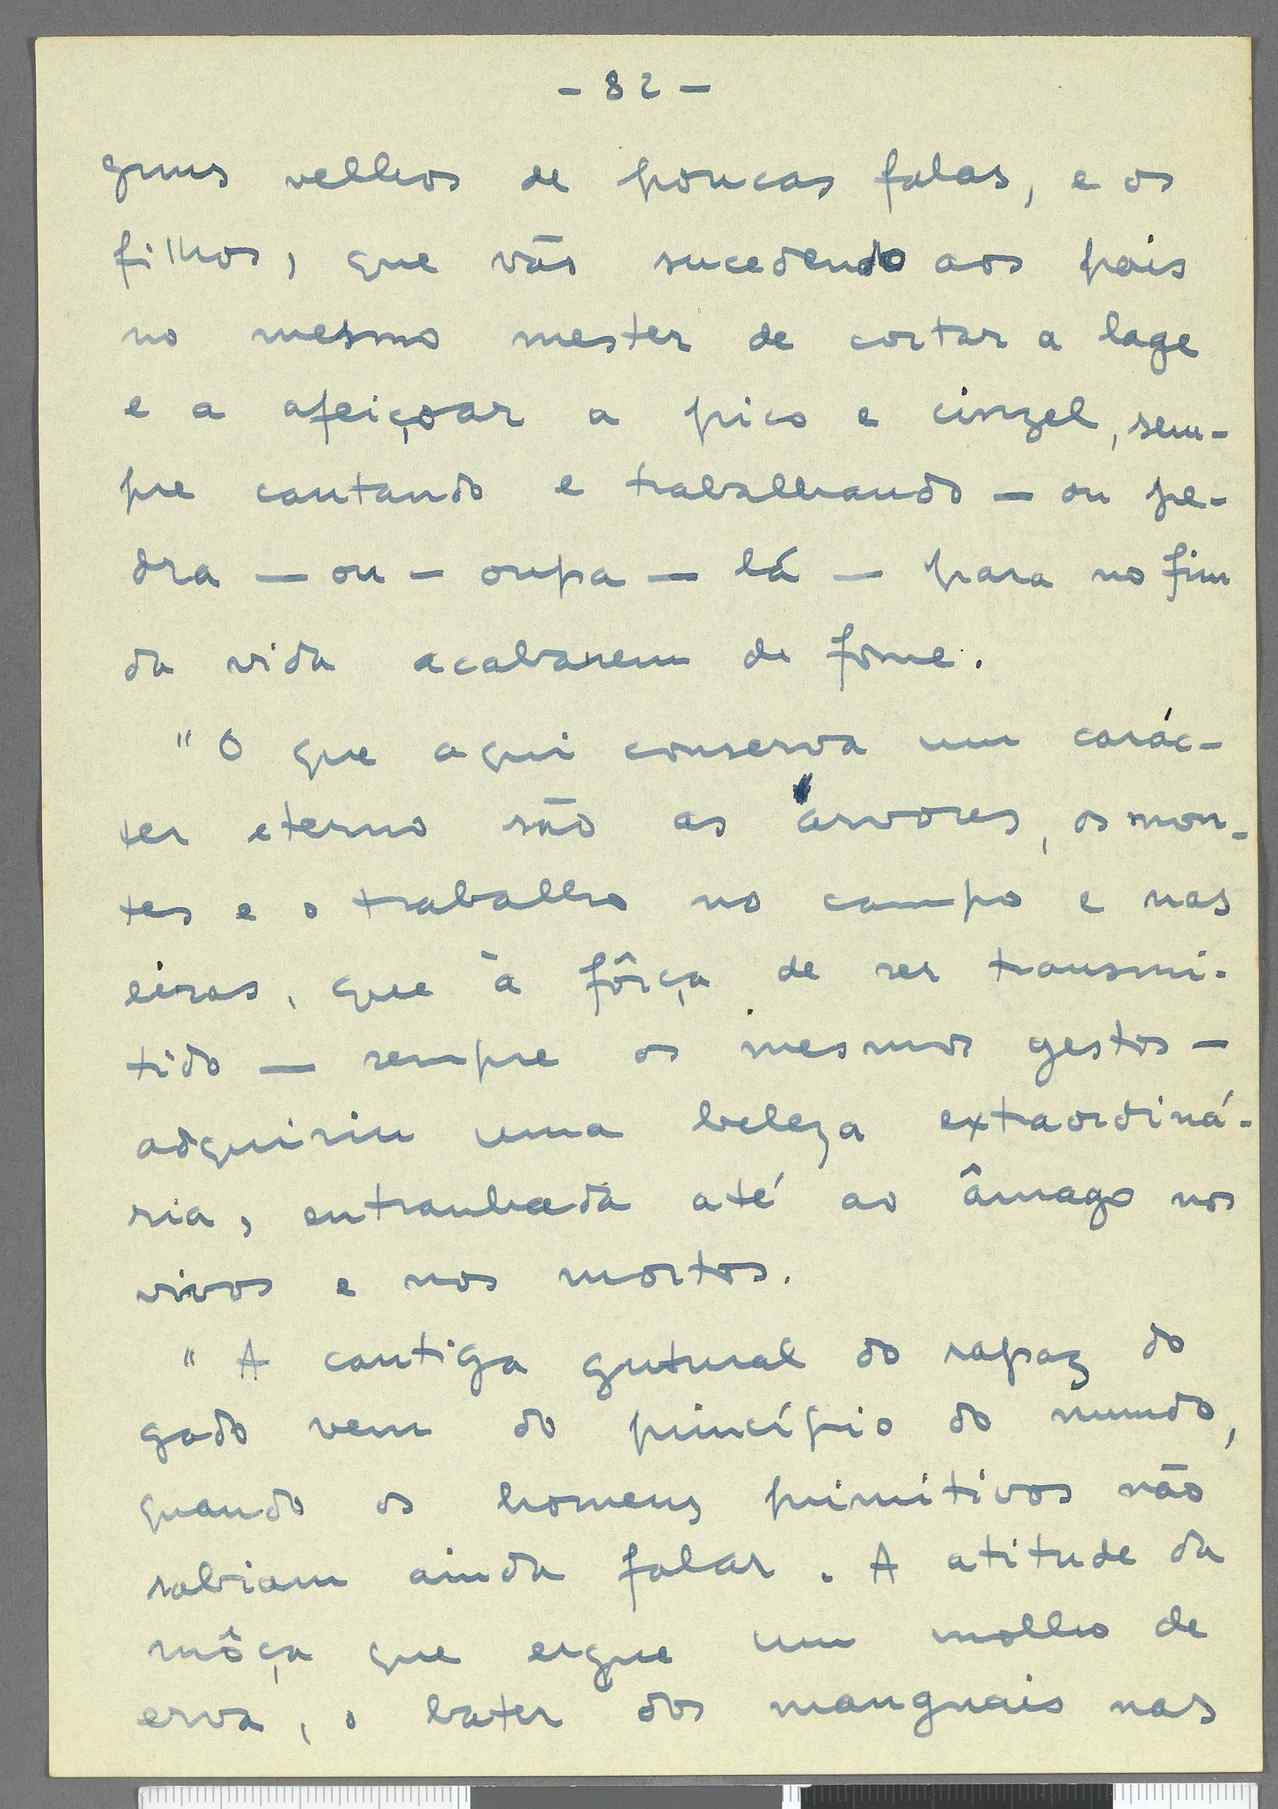 - 82 -
guns velhos de poucas falas, e os
filhos, que vão sucedendo aos pais
no mesmo mester de cortar a lage
e a afeiçoar a pico e cinzel, sem-
pre cantando e trabalhando — ou pe-
dra — ou — oupa — lá — para no fim
da vida acabarem de fome.
" O que aqui conserva um carác-
ter eterno são as árvores, os mon-
tes e o trabalho no campo e nas
eiras, que à fôrça de ser transmi-
tido — sempre os mesmos gestos —
adquiriu uma beleza extraordiná-
ria, entranhada até ao âmago nos
vivos e nos mortos.
" A cantiga gutural do rapaz do
gado vem do princípio do mundo,
quando os homens primitivos não
sabiam ainda falar. A atitude da
môça que ergue um molho de
erva, o bater dos manguais nas